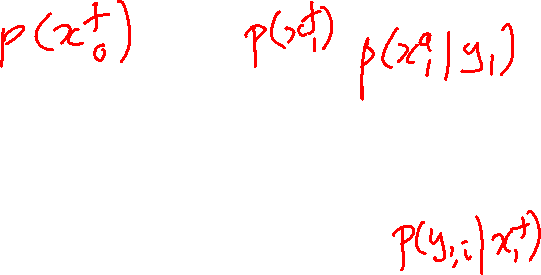 p(x₀ᶠ) p(x₁ᶠ) p(x₁ᵃ|y₁)
p(y₁,ᵢ|x₁ᶠ)